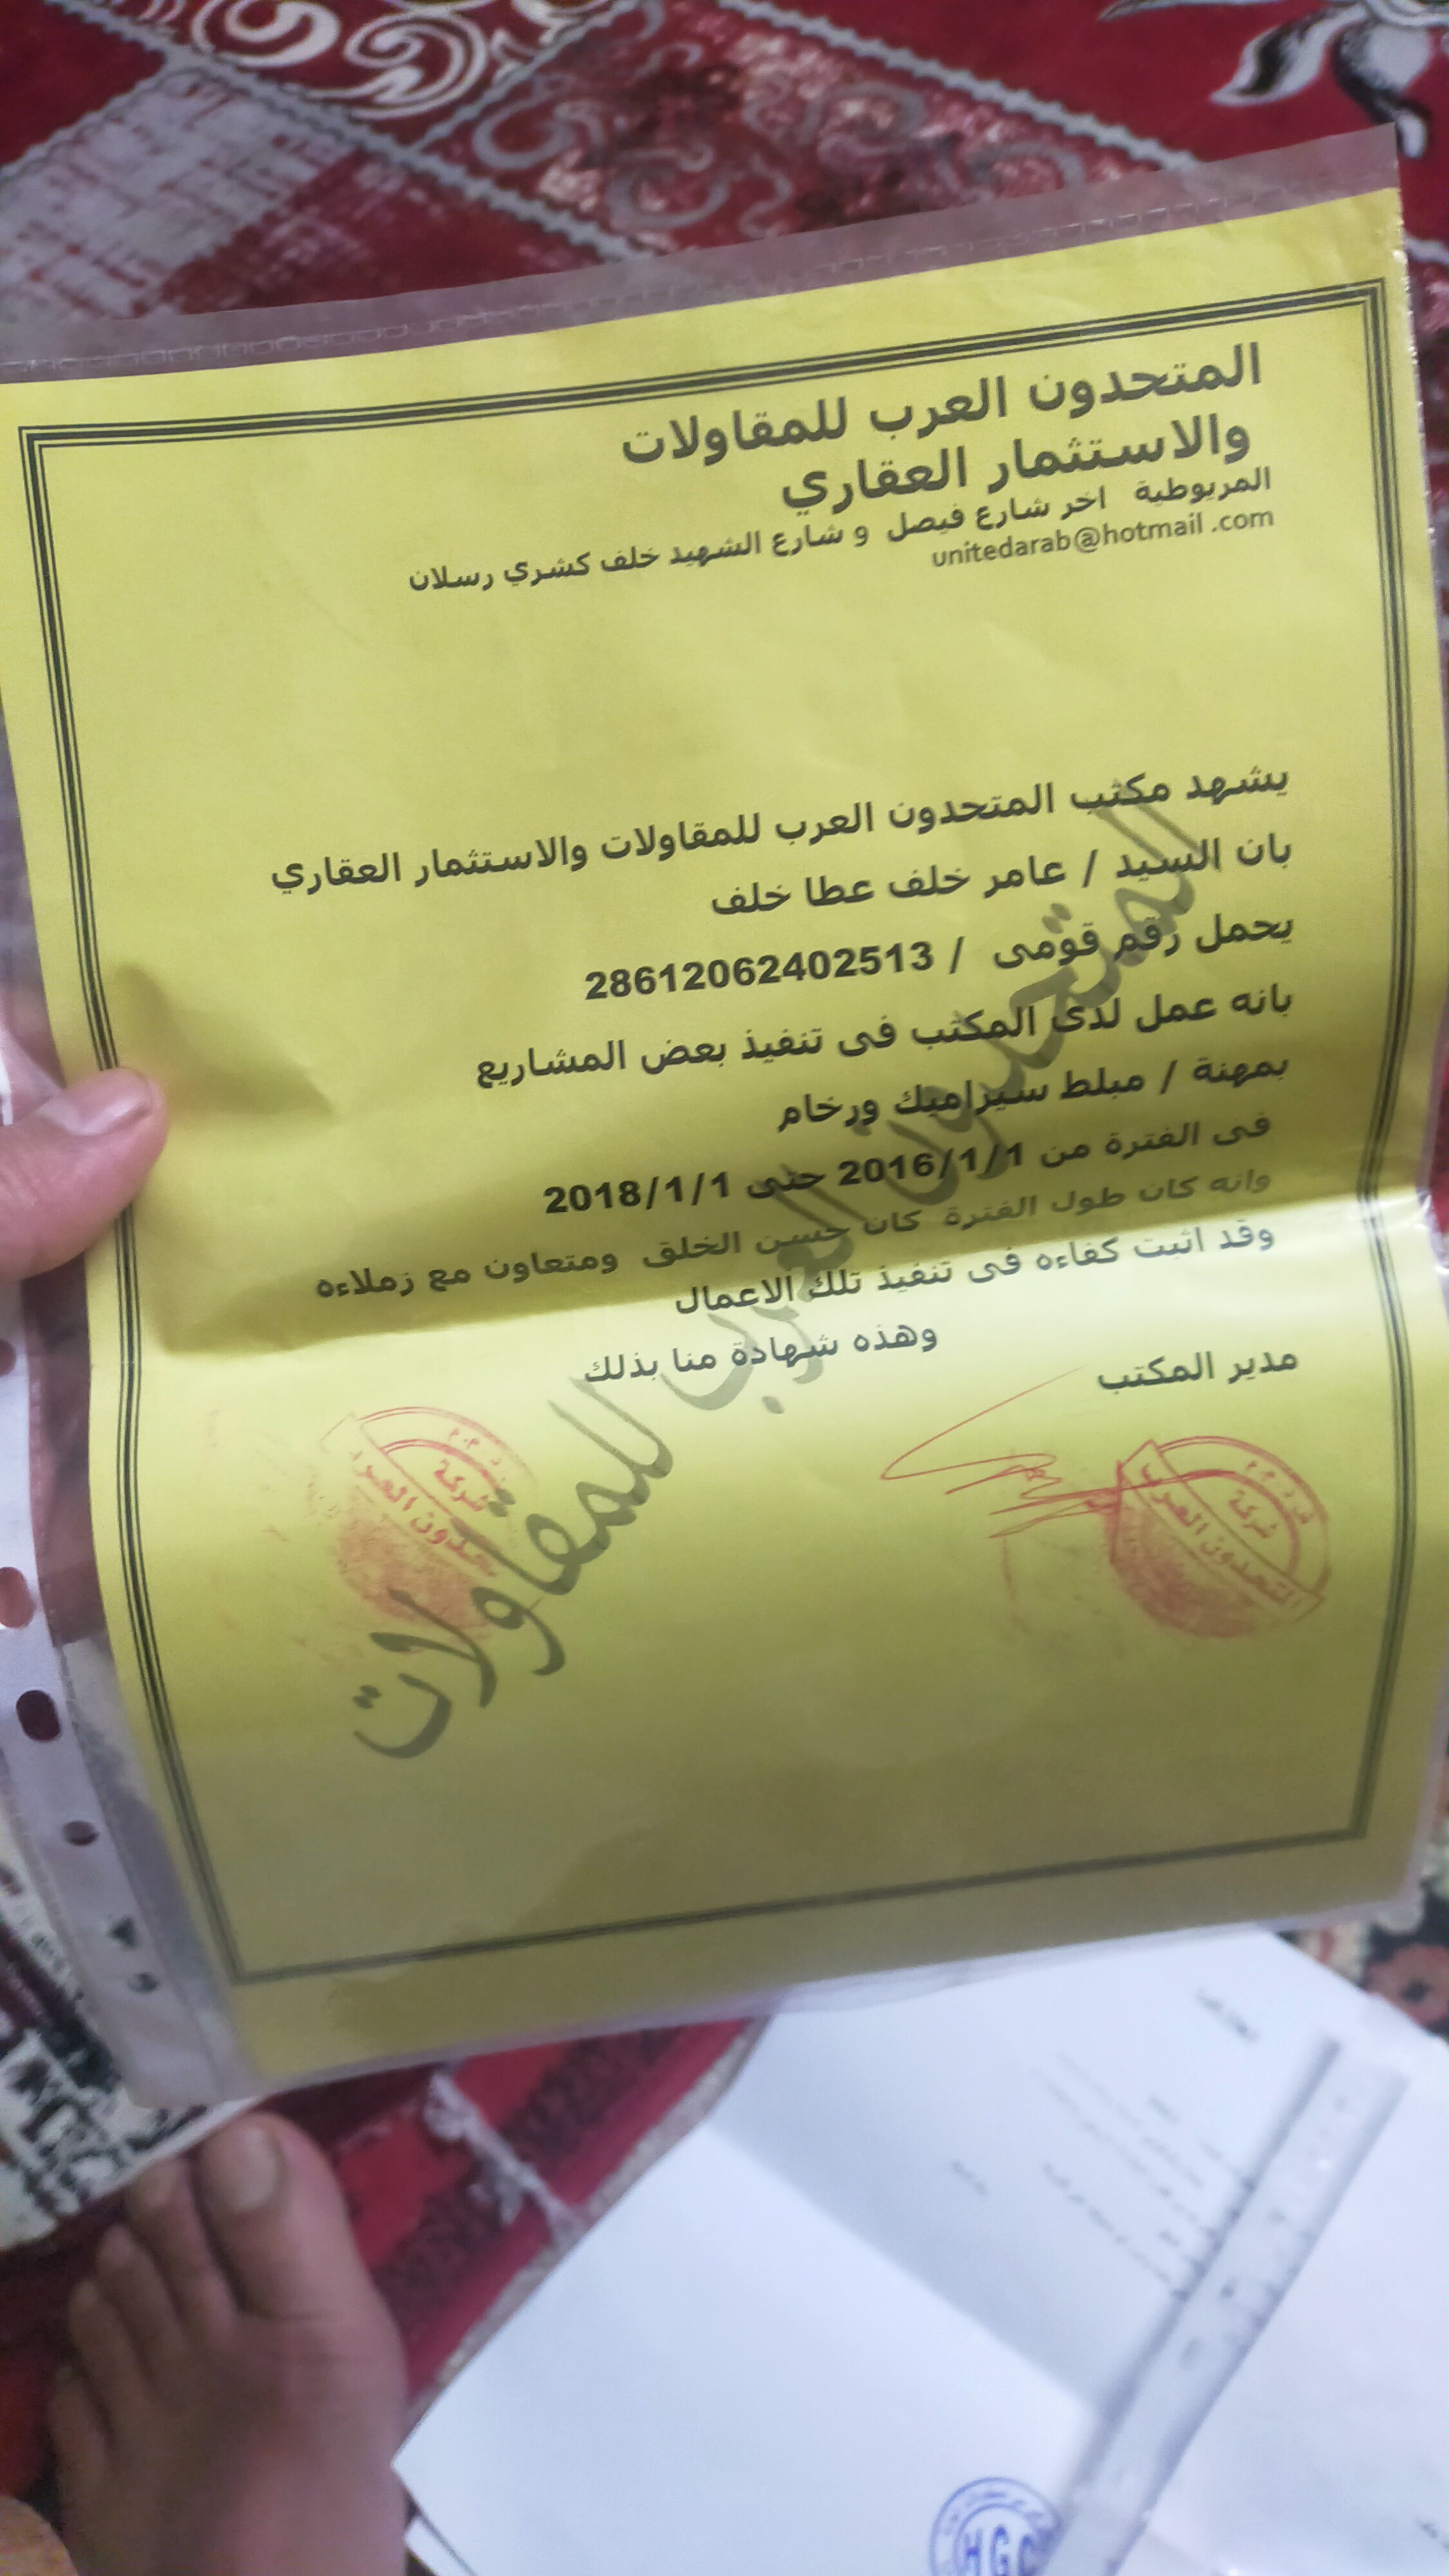 المتحدون العرب للمقاولات
والاستثمار العقاري
المريوطية اخر شارع فيصل و شارع الشهيد خلف كشري رسلان
unitedarab@hotmail .com
يشهد مكتب المتحدون العرب للمقاولات والاستثمار العقاري
بان السيد / عامر خلف عطا خلف
يحمل رقم قومى / 28612062402513
بانه عمل لدى المكتب فى تنفيذ بعض المشاريع
بمهنة / مبلط سيراميك ورخام
فى الفترة من 2016/1/1 حتى 2018/1/1
وانه كان طول الفترة كان حسن الخلق ومتعاون مع زملاءه
وقد اثبت كفاءه فى تنفيذ تلك الاعمال
وهذه شهادة منا بذلك
مدير المكتب
المتحدون العرب للمقاولات
شركة
المتحدون العرب
شركة
HGC